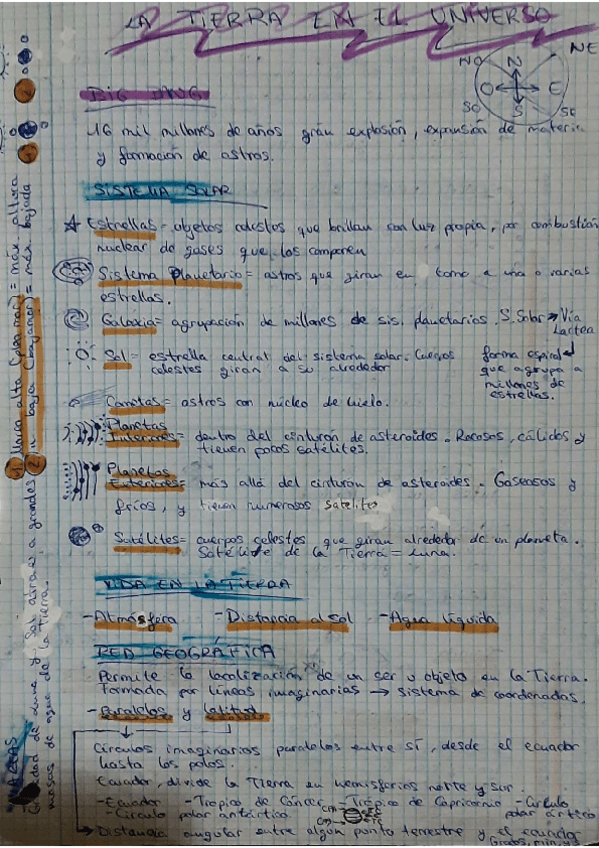 LA TIERRA EN EL UNIVERSO
NO N NE
O E
SO S SE
BIG BANG
16 mil millones de años gran explosión, expansión de materia
y formación de astros.
SISTEMA SOLAR
Estrellas = objetos celestes que brillan con luz propia, por combustión
nuclear de gases que los componen
Sistema Planetario = astros que giran en torno a una o varias
estrellas.
Galaxia = agrupación de millones de sis. planetarios. S. Solar → Vía
Láctea
forma espiral
que agrupa a
millones de
estrellas.
Sol = estrella central del sistema solar. Cuerpos
celestes giran a su alrededor
Cometas = astros con núcleo de hielo.
Planetas
Interiores = dentro del cinturón de asteroides. Rocosos, cálidos y
tienen pocos satélites.
Planetas
Exteriores = más allá del cinturón de asteroides. Gaseosos y
fríos, y tienen numerosos satélites
Satélites = cuerpos celestes que giran alrededor de un planeta.
Satélite de la Tierra = Luna.
VIDA EN LA TIERRA
- Atmósfera - Distancia al sol - Agua líquida
RED GEOGRÁFICA
Permite la localización de un ser u objeto en la Tierra.
Formada por líneas imaginarias → sistema de coordenadas.
- Paralelos y latitud
Círculos imaginarios paralelos entre sí, desde el ecuador
hasta los polos.
Ecuador, divide la Tierra en hemisferios norte y sur.
- Ecuador - Trópico de Cáncer - Trópico de Capricornio - Círculo
polar ártico
- Círculo polar antártico.
Distancia angular entre algún punto terrestre y el ecuador
Grados, min, y s
MAREAS
de Luna y Sol atraes a grandes
masas de agua de la Tierra.
1 Marea alta (pleamar) = máx altura
2 m baja (bajamar) = máx bajada